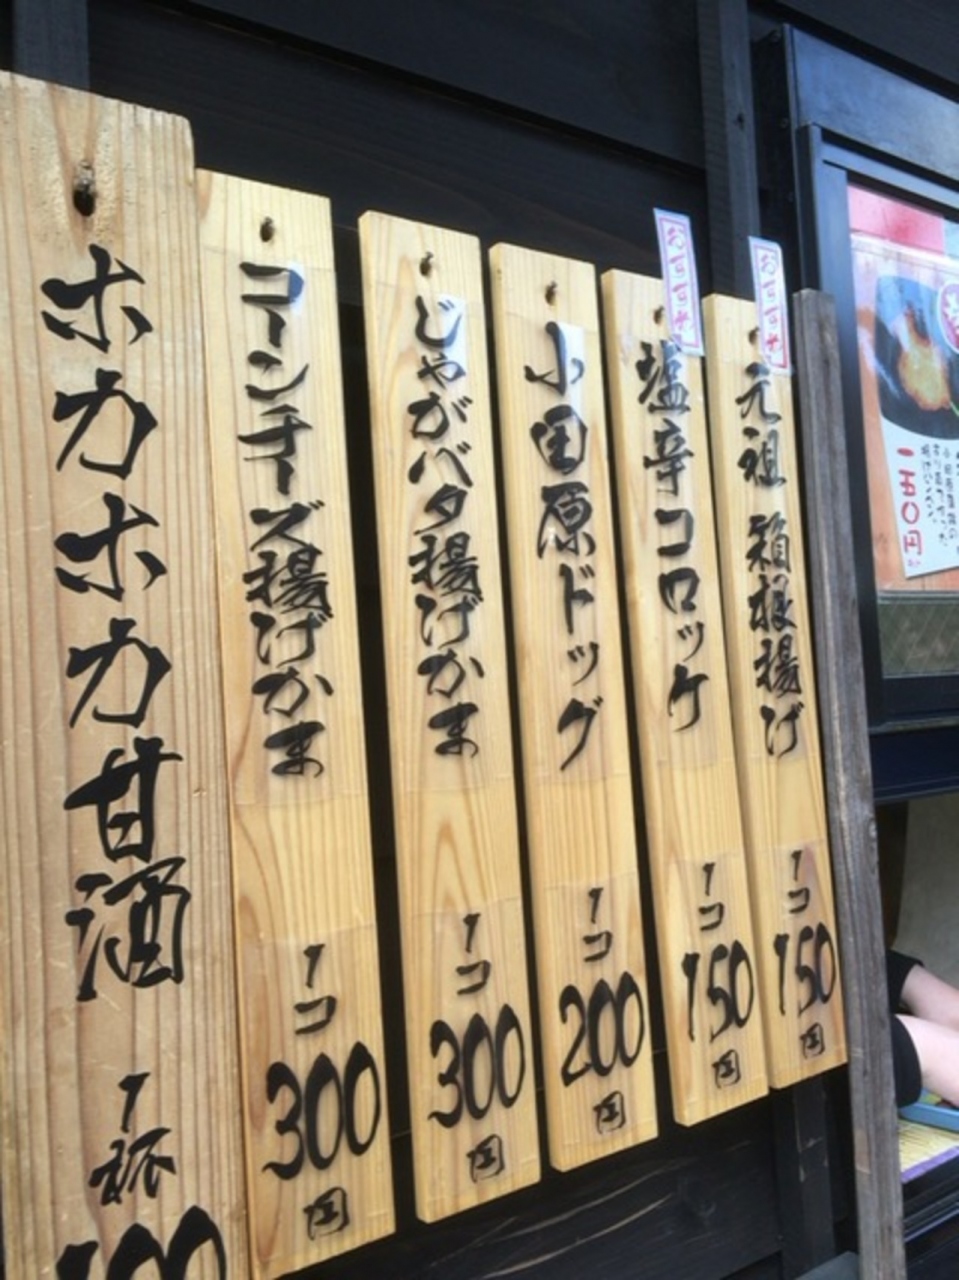 おすすめ
元祖 箱根揚げ
1コ
150
円
おすすめ
塩辛コロッケ
1コ
150
円
小田原ドッグ
1コ
200
円
じゃがバタ揚げかま
1コ
300
円
コーンチーズ揚げかま
1コ
300
円
ホカホカ甘酒
1杯
100
一五〇円